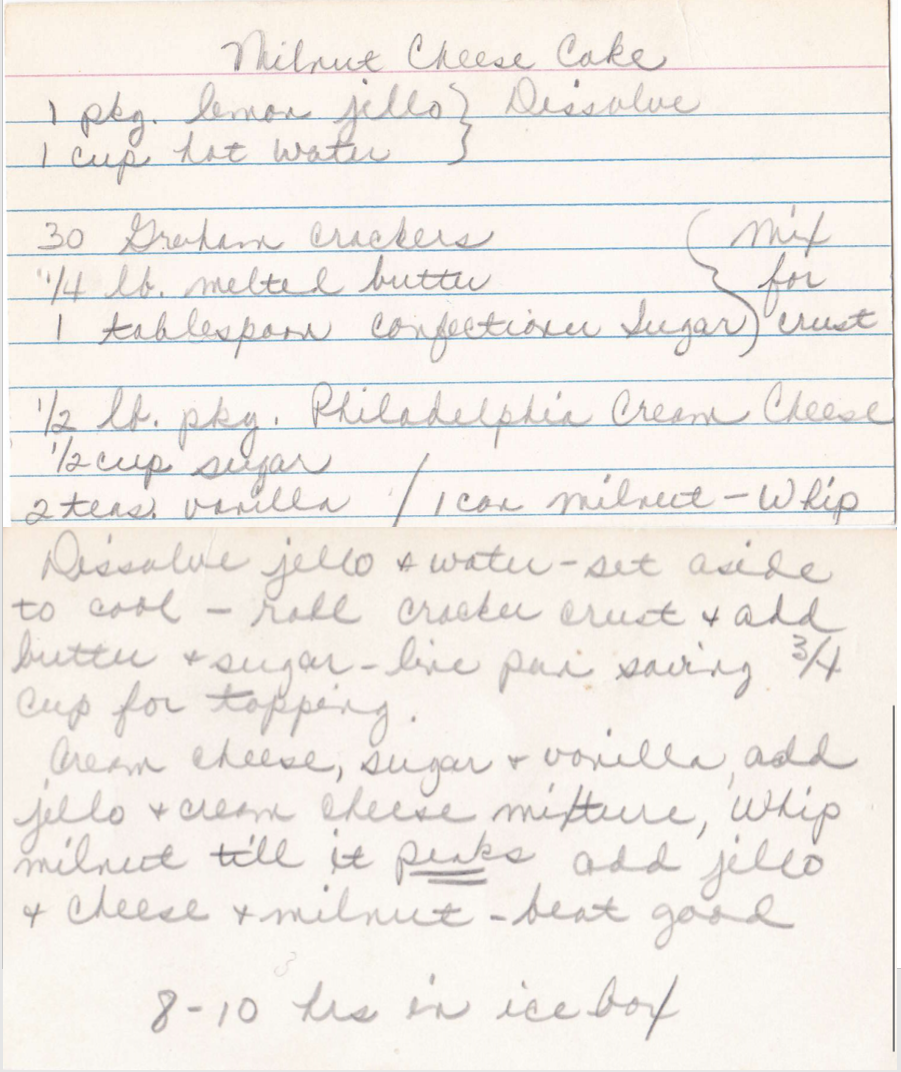 Milnut Cheese Cake
1 pkg. lemon jello } Dissolve
1 cup hot water }
30 Graham crackers ( Mix
1/4 lb. melted butter } for
1 tablespoon confectioner sugar ) crust
1/2 lb. pkg. Philadelphia Cream Cheese
1/2 cup sugar
2 teas. vanilla / 1 can milnut - Whip
Dissolve jello + water - set aside
to cool - roll cracker crust + add
butter + sugar - line pan saving 3/4
cup for topping.
Cream cheese, sugar + vanilla, add
jello + cream cheese mixture, Whip
milnut till it peaks add jello
+ cheese + milnut - beat good
8-10 hrs in ice box